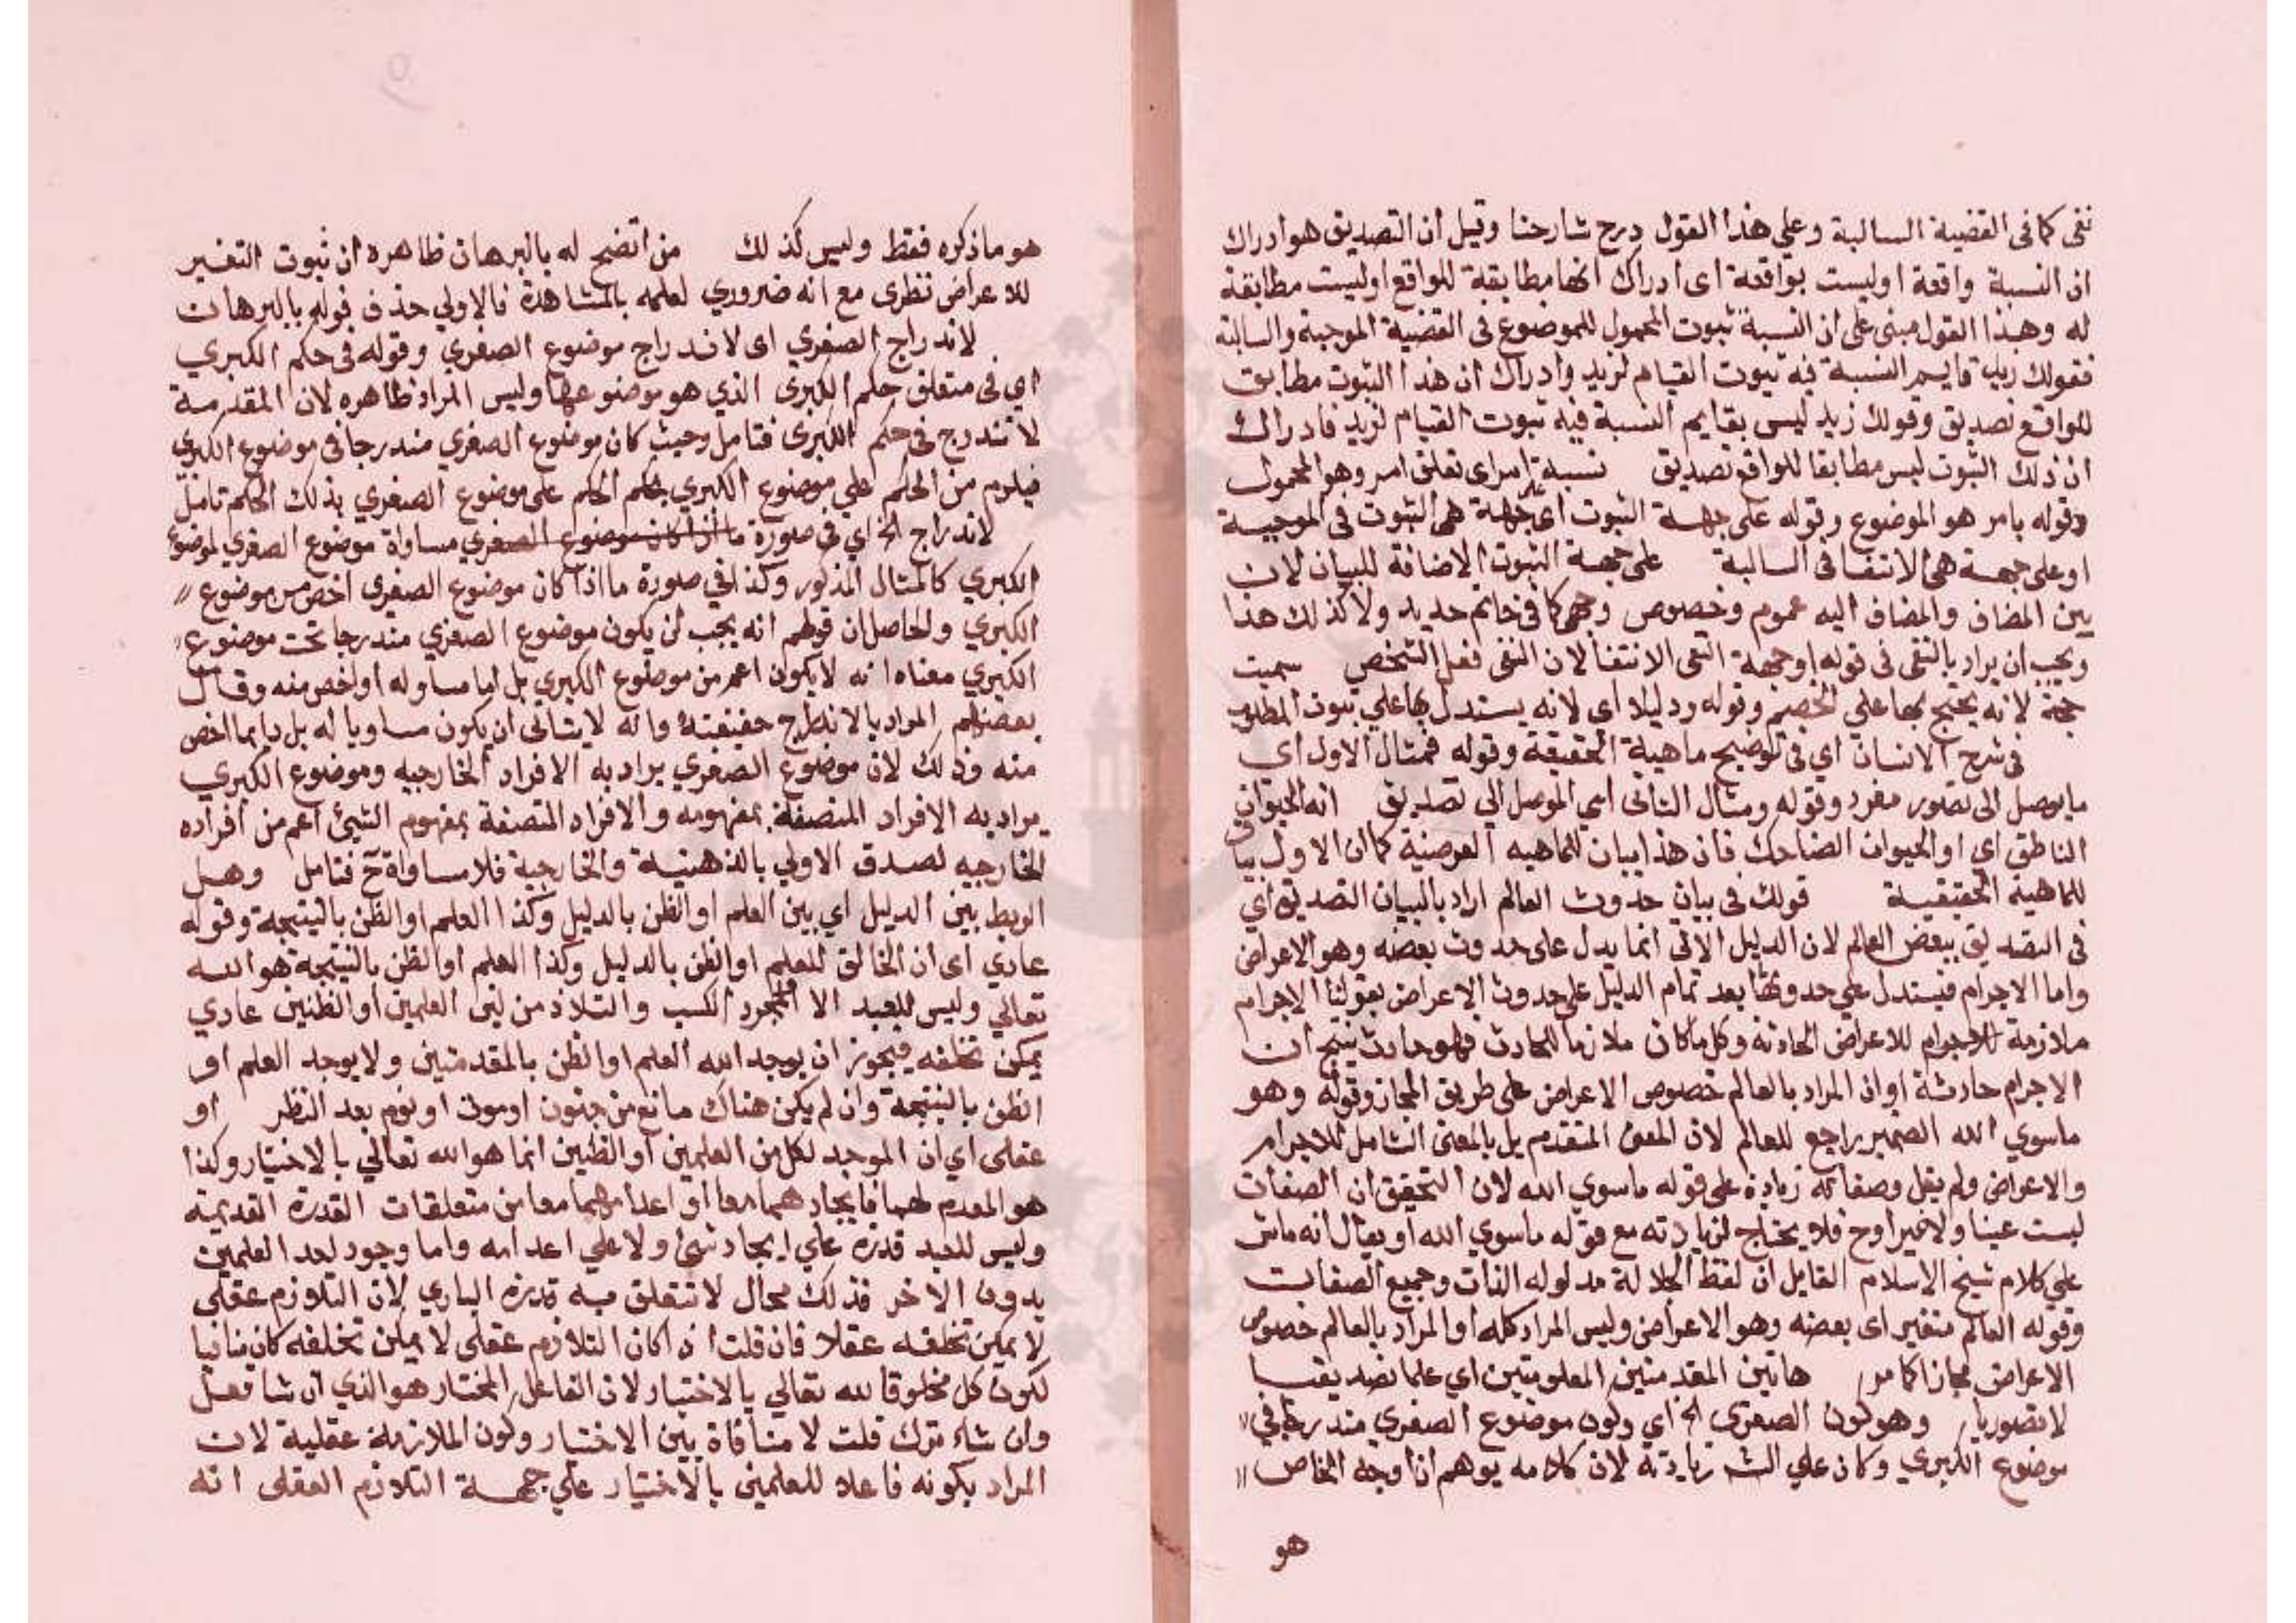 نفى كما فى القضية السالبة وعلي هذا القول درج شارحنا وقيل ان التصديق هو ادراك
ان النسبة واقعة اوليست بواقعة اى ادراك انها مطابقة للواقع اوليست مطابقة
له وهذا القول مبنى على ان النسبة ثبوت المحمول للموضوع فى القضية الموجبة والسالبة
فقولك زيد قايم النسبة فيه ثبوت القيام لزيد وادراك ان هذا الثبوت مطابق
للواقع تصديق وقولك زيد ليس بقايم النسبة فيه ثبوت القيام لزيد فادراك
ان ذلك الثبوت ليس مطابقا للواقع تصديق نسبة امر اى تعلق امر وهو المحمول
وقوله بامر هو الموضوع وقوله على جهة الثبوت اى جهة هى الثبوت فى الموجبة
او على جهة هى الانتفا فى السالبة على جهة الثبوت الاضافة للبيان لان
بين المضاف والمضاف اليه عموم وخصوص وجهى كما فى خاتم حديد ولا كذلك هذا
ويجب ان يراد بالنفى فى قوله او جهة النفى الانتفا لان النفى فعل الشخص سميت
حجة لانه يحتج بها على الخصم وقوله ودليلا اى لانه يستدل بها علي ثبوت المطلوب
فى شرح الانسان اي فى توضيح ماهيته الحقيقة وقوله فمثال الاول اى
ما يوصل الى تصور مفرد وقوله ومثال الثانى اى الموصل الي تصديق انه الحيوان
الناطق اي او الحيوان الضاحك فان هذا بيان للماهيه العرضية كما ان الاول بيان
للماهية الحقيقية قولك فى بيان حدوث العالم اراد بالبيان التصديق اي
فى التصديق ببعض العالم لان الدليل الاتى انما يدل على حدوث بعضه وهو الاعراض
واما الاجرام فيستدل علي حدوثها بعد تمام الدليل على حدوث الاعراض بقولنا الاجرام
ملازمة للاعراض الحادثة وكل ما كان ملازما للحادث فهو حادث ينتج ان
الاجرام حادثة او ان المراد بالعالم خصوص الاعراض على طريق المجاز وقوله وهو
ماسوي الله الضمير راجع للعالم لان المعنى المتقدم بل بالمعنى الشامل للاجرام
والاعراض ولم يقل وصفاته زيادة على قوله ماسوي الله لان التحقيق ان الصفات
ليست عينا ولا غيرا وح فلا يحتاج لزيادته مع قوله ماسوي الله او يقال انه ماش
علي كلام شيخ الاسلام القايل ان لفظ الجلالة مدلوله الذات وجميع الصفات
وقوله العالم متغير اى بعضه وهو الاعراض وليس المراد كله او المراد بالعالم خصوص
الاعراض مجازا كما مر هاتين المقدمتين المعلومتين اي علما تصديقيا
لا تصوريا وهو كون الصغرى الخ اي وكون موضوع الصغري مندرجا في
موضوع الكبري وكان علي الش زيادته لان كلامه يوهم ان اوجه الخاص
هو
هو ماذكره فقط وليس كذلك من اتضح له بالبرهان ظاهره ان ثبوت التغير
للاعراض نظرى مع انه ضروري لعلمه بالمشاهدة فالاولي حذف قوله بالبرهان
لاندراج الصغري اى لاندراج موضوع الصغري وقوله فى حكم الكبري
اي فى متعلق حكم الكبرى الذي هو موضوعها وليس المراد ظاهره لان المقدمة
لا تندرج فى حكم الكبرى فتامل وحيث كان موضوع الصغري مندرجا فى موضوع الكبرى
فيلزم من الحكم علي موضوع الكبري بحكم الحكم على موضوع الصغري بذلك الحكم تامل
لاندراج الخ اي فى صورة ما اذا كان موضوع الصغري مساواة موضوع الصغري لموضوع
الكبري كالمثال المذكور وكذا في صورة ما اذا كان موضوع الصغرى اخص من موضوع
الكبري والحاصل ان قولهم انه يجب ان يكون موضوع الصغري مندرجا تحت موضوع
الكبري معناه انه لا يكون اعم من موضوع الكبري بل اما مساو له او اخص منه وقال
بعضهم المراد بالاندراج حقيقته وانه لا يتاتى ان يكون مساويا له بل دايما اخص
منه وذلك لان موضوع الصغري يراد به الافراد الخارجيه وموضوع الكبري
يراد به الافراد المتصفة بمفهومه والافراد المتصفة بمفهوم الشيئ اعم من افراده
الخارجيه لصدق الاولي بالذهنية والخارجية فلا مساواة ح فتامل وهل
الربط بين الدليل اي بين العلم او الظن بالدليل وكذا العلم او الظن بالنتيجة وقوله
عادي اى ان الخالق للعلم او الظن بالدليل وكذا العلم او الظن بالنتيجة هو الله
تعالي وليس للعبد الا مجرد الكسب والتلازم بين العلمين او الظنين عادي
يمكن تخلفه فيجوز ان يوجد الله العلم او الظن بالمقدمتين ولا يوجد العلم او
الظن بالنتيجة وان لم يكن هناك مانع من جنون او موت او نوم بعد النظر او
عقلى اي ان الموجد لكل من العلمين او الظنين انما هو الله تعالي بالاختيار وكذا
هو المعدم لهما فايجادهما معا او اعدامهما معا من متعلقات القدرة القديمة
وليس للعبد قدرة علي ايجاد شئ ولا علي اعدامه واما وجود احد العلمين
بدون الاخر فذلك محال لا تتعلق به قدرة الباري لان التلازم عقلى
لا يمكن تخلفه عقلا فان قلت اذا كان التلازم عقلى لا يمكن تخلفه كان منافيا
لكون كل مخلوقا لله تعالي بالاختيار لان الفاعل المختار هو الذي ان شا فعل
وان شاء ترك قلت لا منافاة بين الاختيار وكون الملازمة عقلية لان
المراد بكونه فاعلا للعلمين بالاختيار علي جهة التلازم العقلى انه